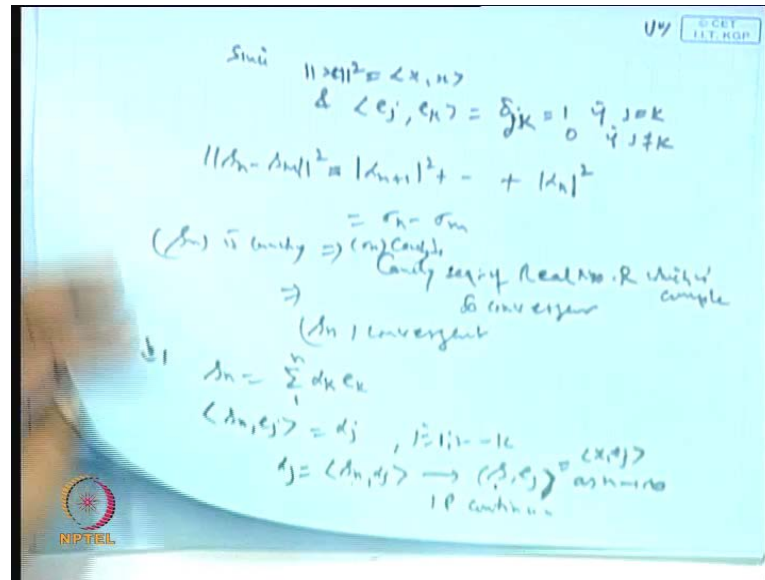 © CET
I.I.T. KGP
Since ||x||² = <x, x>
& <ej, ek> = δjk = 1 if j=k
0 if j≠k
||sn - sm||² = |αm+1|² + - + |αn|²
= σn - σm
(sn) is Cauchy => (σn) Cauchy
Cauchy seq. of Real Nos. R which is
complete
=> so convergent
(sn) convergent
b)
sn = Σ₁ⁿ αk ek
<sn, ej> = αj , j=1, - - k
αj = <sn, αj> → (s, ej) = <x, ej>
as n→∞
IP
NPTEL